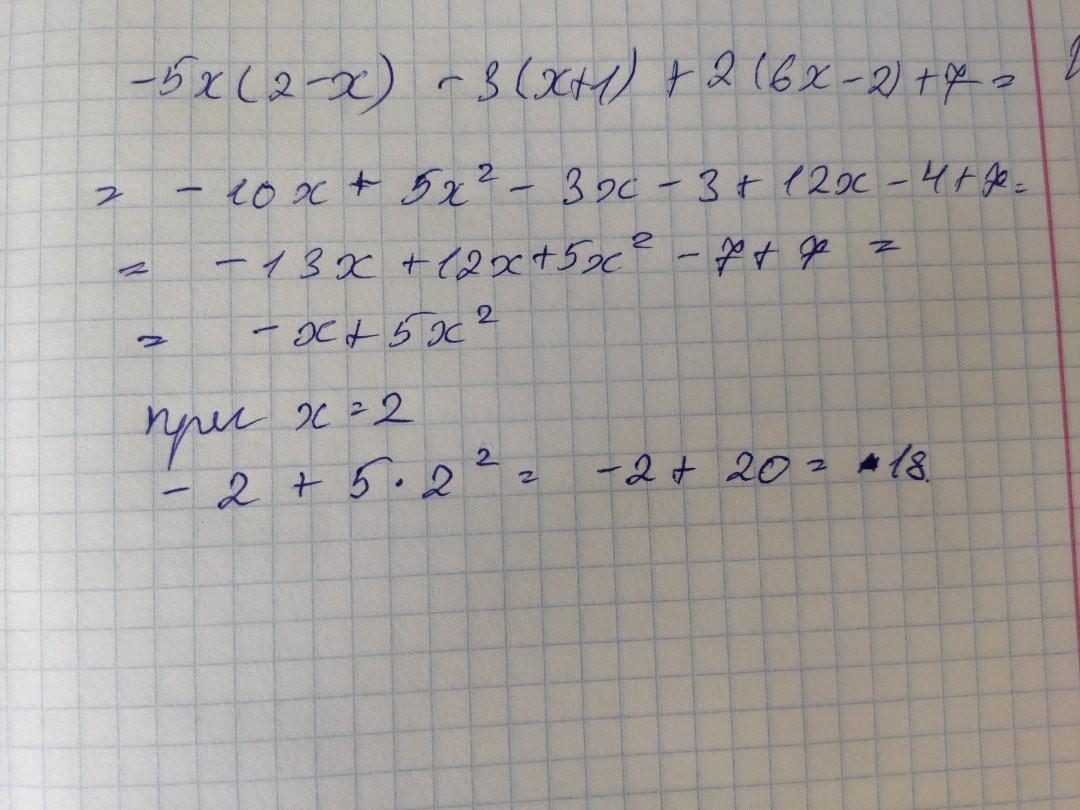 -5x(2-x) -3(x+1) +2(6x-2)+7=
= -10x + 5x² - 3x - 3 + 12x - 4 + 7 =
= -13x +12x+5x² -7+7 =
= -x+5x²
при x=2
-2 + 5·2² = -2+ 20 = 18.